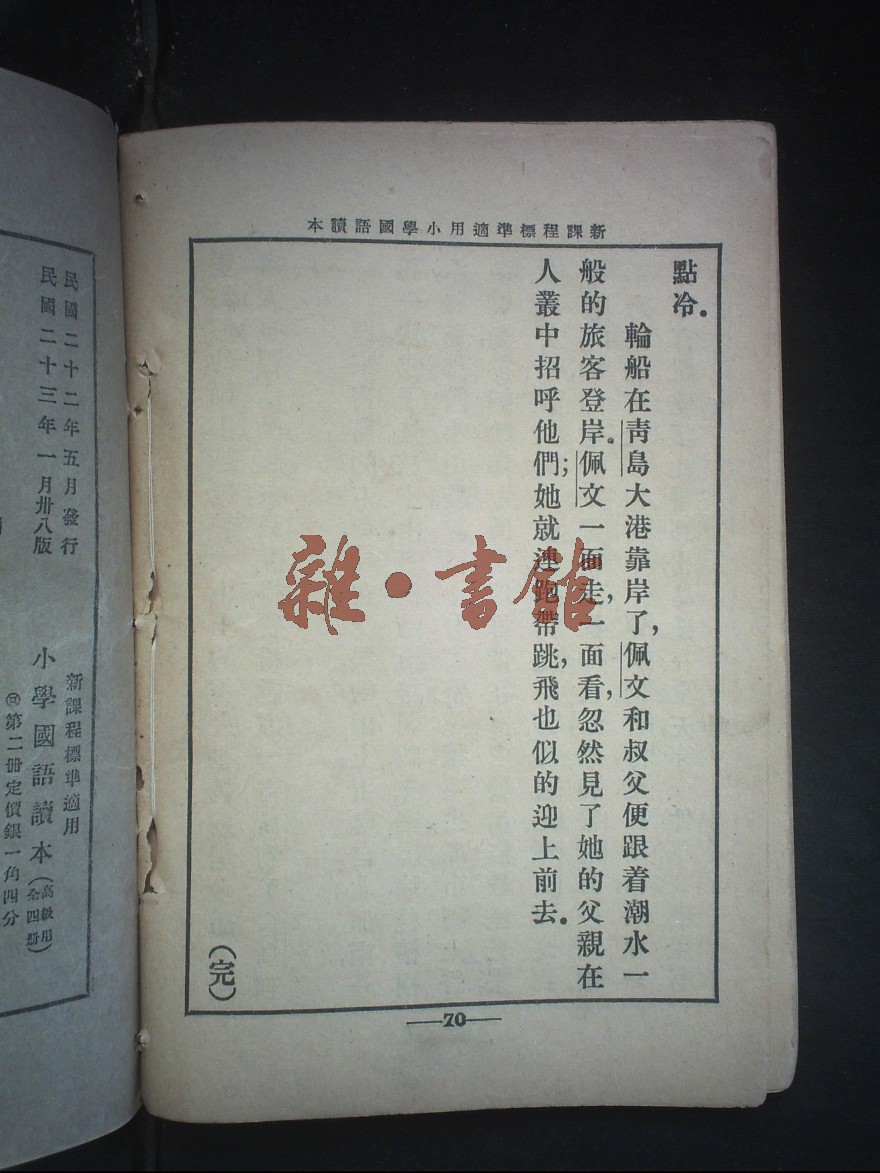 新課程標準適用小學國語讀本
點冷。
輪船在青島大港靠岸了，佩文和叔父便跟着潮水一
般的旅客登岸。佩文一面走，一面看，忽然見了她的父親在
人叢中招呼他們；她就連跑帶跳，飛也似的迎上前去。
（完）
70
雜·書館
民國二十二年五月發行
民國二十三年一月卅八版
新課程標準適用
小學國語讀本（高級用全四册）
第二册定價銀一角四分